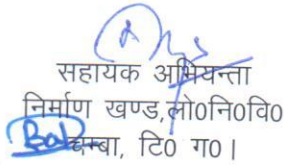 सहायक अभियन्ता
निर्माण खण्ड,लो0नि0वि0
चम्बा, टि0 ग0।